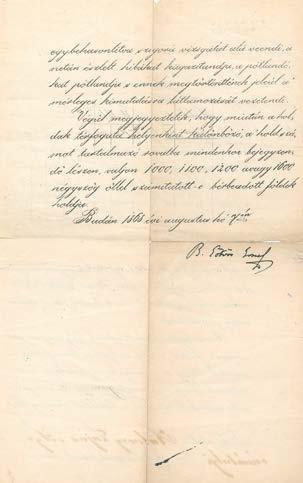 egybehasonlitva szigorú vizsgálat alá veendi, a
netán észlelt hibákat kiigazitandja, a pótlandó,
kat pótlandja s ennek megtörténtének jeléül a
mérleges kimutatásra láttamozását vezetendi.
Végül megjegyeztetik, hogy miután a hol,
dak térfogata helyenkint különböző, a holdszá,
mot tartalmazó rovatba mindenkor bejegyzen,
dő leszen, valjon 1000, 1100, 1200 avagy 1600
négyszög öllel számitatott e bérbeadott földek
holdja.
Budán 1868 évi augustus hó
B. Eötvös József